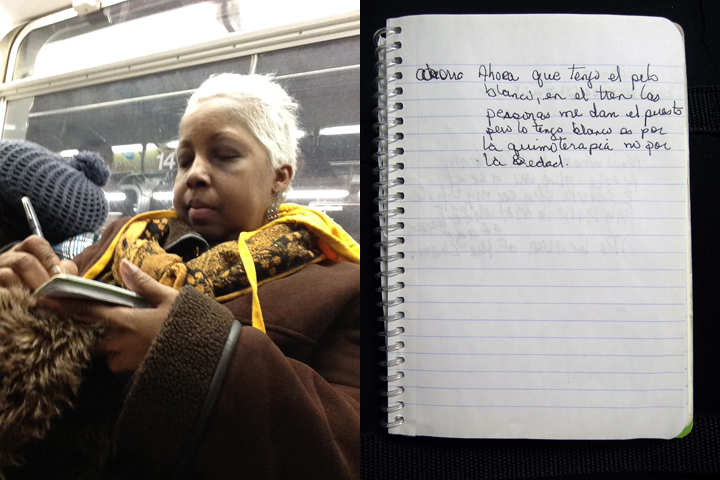 14
Ahora que tengo el pelo
blanco, en el tren las
personas me dan el puesto
pero lo tengo blanco es por
la quimoterapia no por
la edad.